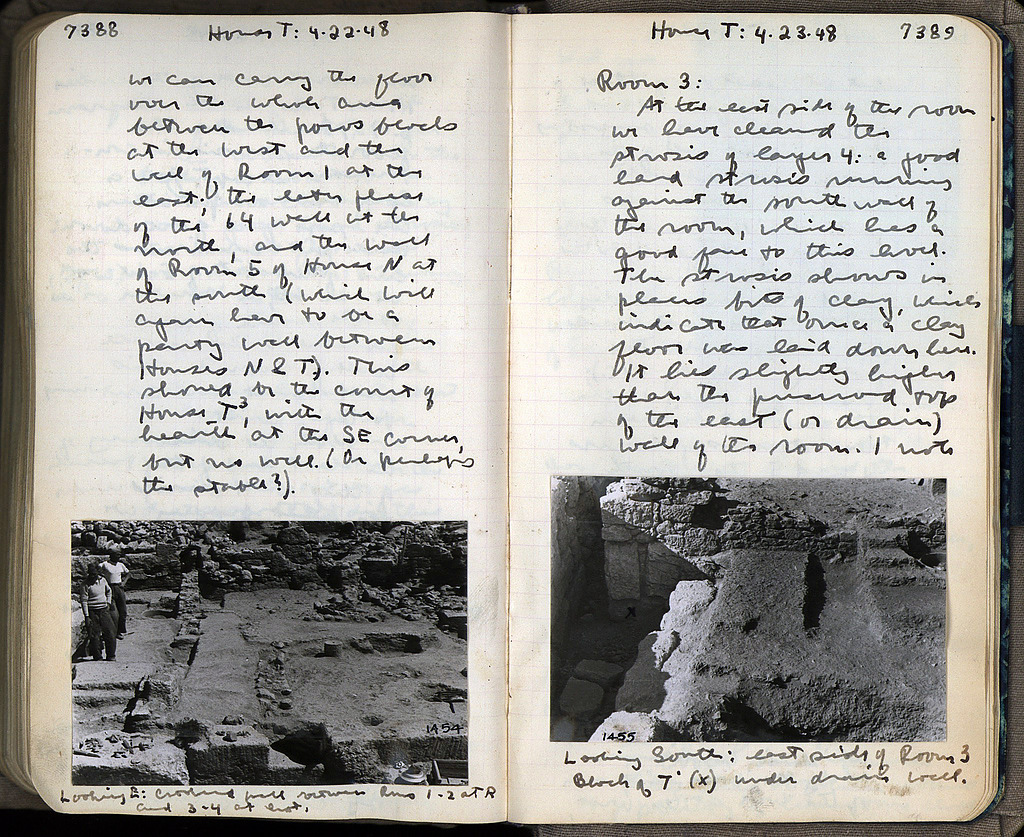 7388
House T: 4.22.48
we can carry the floor
over the whole area
between the poros blocks
at the west and the
wall of Room 1 at the
east; the later phase
of the '64 wall at the
north, and the wall
of Room 5 of House N at
the south (which will
again have to be a
party wall between
Houses N & T). This
should be the court of
House T³, with the
hearth at the SE corner,
but no well. (Or perhaps
the stable?).
1454
Looking E: crooked wall between Rms 1-2 at R
and 3-4 at
House T: 4.23.48
7389
Room 3:
At the east side of the room
we have cleaned the
strosis of layer 4: a good
hard strosis running
against the south wall of
the room, which has a
good face to this level.
The strosis shows in
places bits of clay, which
indicate that once a clay
floor was laid down here.
It lies slightly higher
than the preserved top
of the east (or drain)
wall of the room. I note
x
1455
Looking South: east side of Room 3
Block of T' (x) under drain wall.